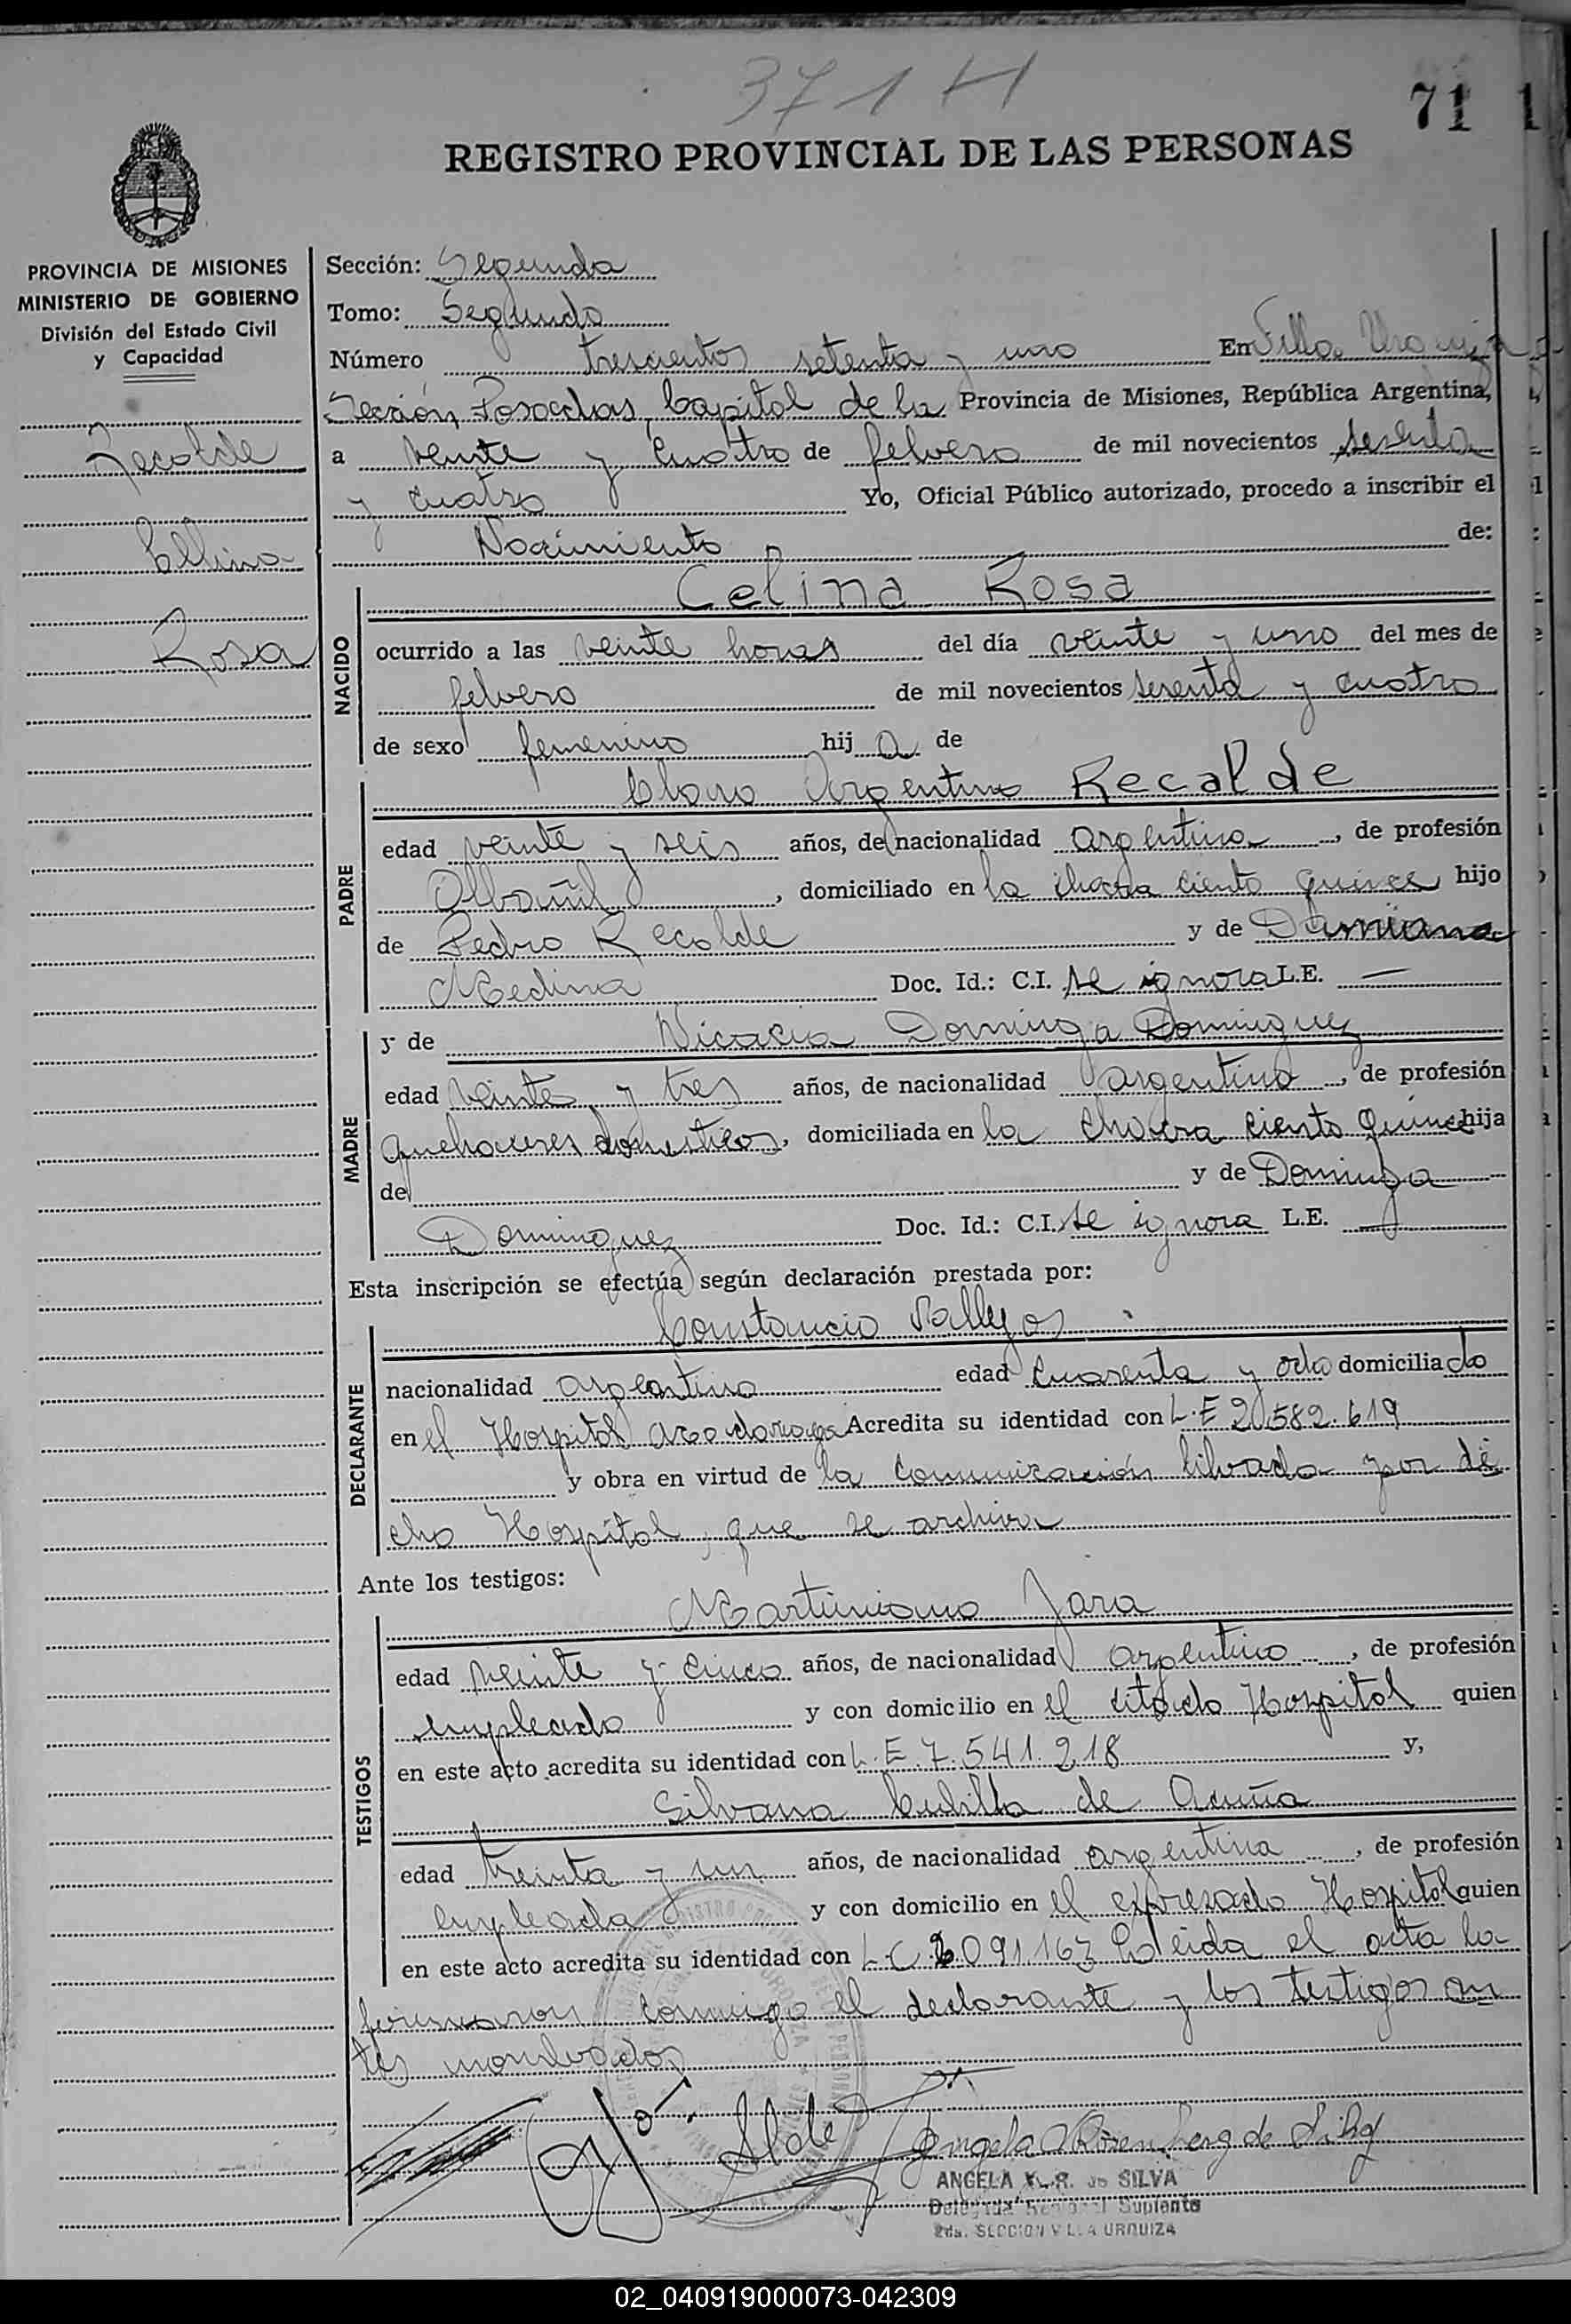 371 H
71 1
REGISTRO PROVINCIAL DE LAS PERSONAS
PROVINCIA DE MISIONES
MINISTERIO DE GOBIERNO
División del Estado Civil
y Capacidad
Recalde
Celina
Rosa
Sección: Segunda
Tomo: Segundo
Número trescientos setenta y uno En Villa Urquiza
Sección, Posadas, Capital de la Provincia de Misiones, República Argentina,
a veinte y cuatro de febrero de mil novecientos sesenta
y cuatro Yo, Oficial Público autorizado, procedo a inscribir el
Nacimiento de:
NACIDO
Celina Rosa
ocurrido a las veinte horas del día veinte y uno del mes de
febrero de mil novecientos sesenta y cuatro
de sexo femenino hij a de
PADRE
Argentino Recalde
edad veinte y seis años, de nacionalidad argentina, de profesión
Albañil, domiciliado en la chacra ciento quince hijo
de Pedro Recalde y de Damiana
Medina Doc. Id.: C.I. se ignora L.E. —
MADRE
y de Nicacia Dominga Dominguez
edad veinte y tres años, de nacionalidad argentina, de profesión
quehaceres domesticos, domiciliada en la chacra ciento quince hija
de y de Dominga
Dominguez Doc. Id.: C.I. se ignora L.E. —
Esta inscripción se efectúa según declaración prestada por:
DECLARANTE
Constancio Vallejos
nacionalidad argentino edad cuarenta y ocho domiciliado
en el Hospital Acredita su identidad con L.E 2.582.619
y obra en virtud de la comunicación librada por di
cho Hospital, que se archiva
Ante los testigos:
TESTIGOS
Martiniano Jara
edad veinte y cinco años, de nacionalidad argentino, de profesión
empleado y con domicilio en el citado Hospital quien
en este acto acredita su identidad con L.E. 7.541.218 y,
Silvana Cubilla de Acuña
edad treinta y un años, de nacionalidad argentina, de profesión
empleada y con domicilio en el expresado Hospital quien
en este acto acredita su identidad con L.C. 091.167 Leida el acta la
firmaron conmigo el declarante y los testigos an
tes nombrados
Angela Rosemberg de Silva
ANGELA R. de SILVA
Delegada Regional Suplente
2da. SECCION VILLA URQUIZA
02_040919000073-042309